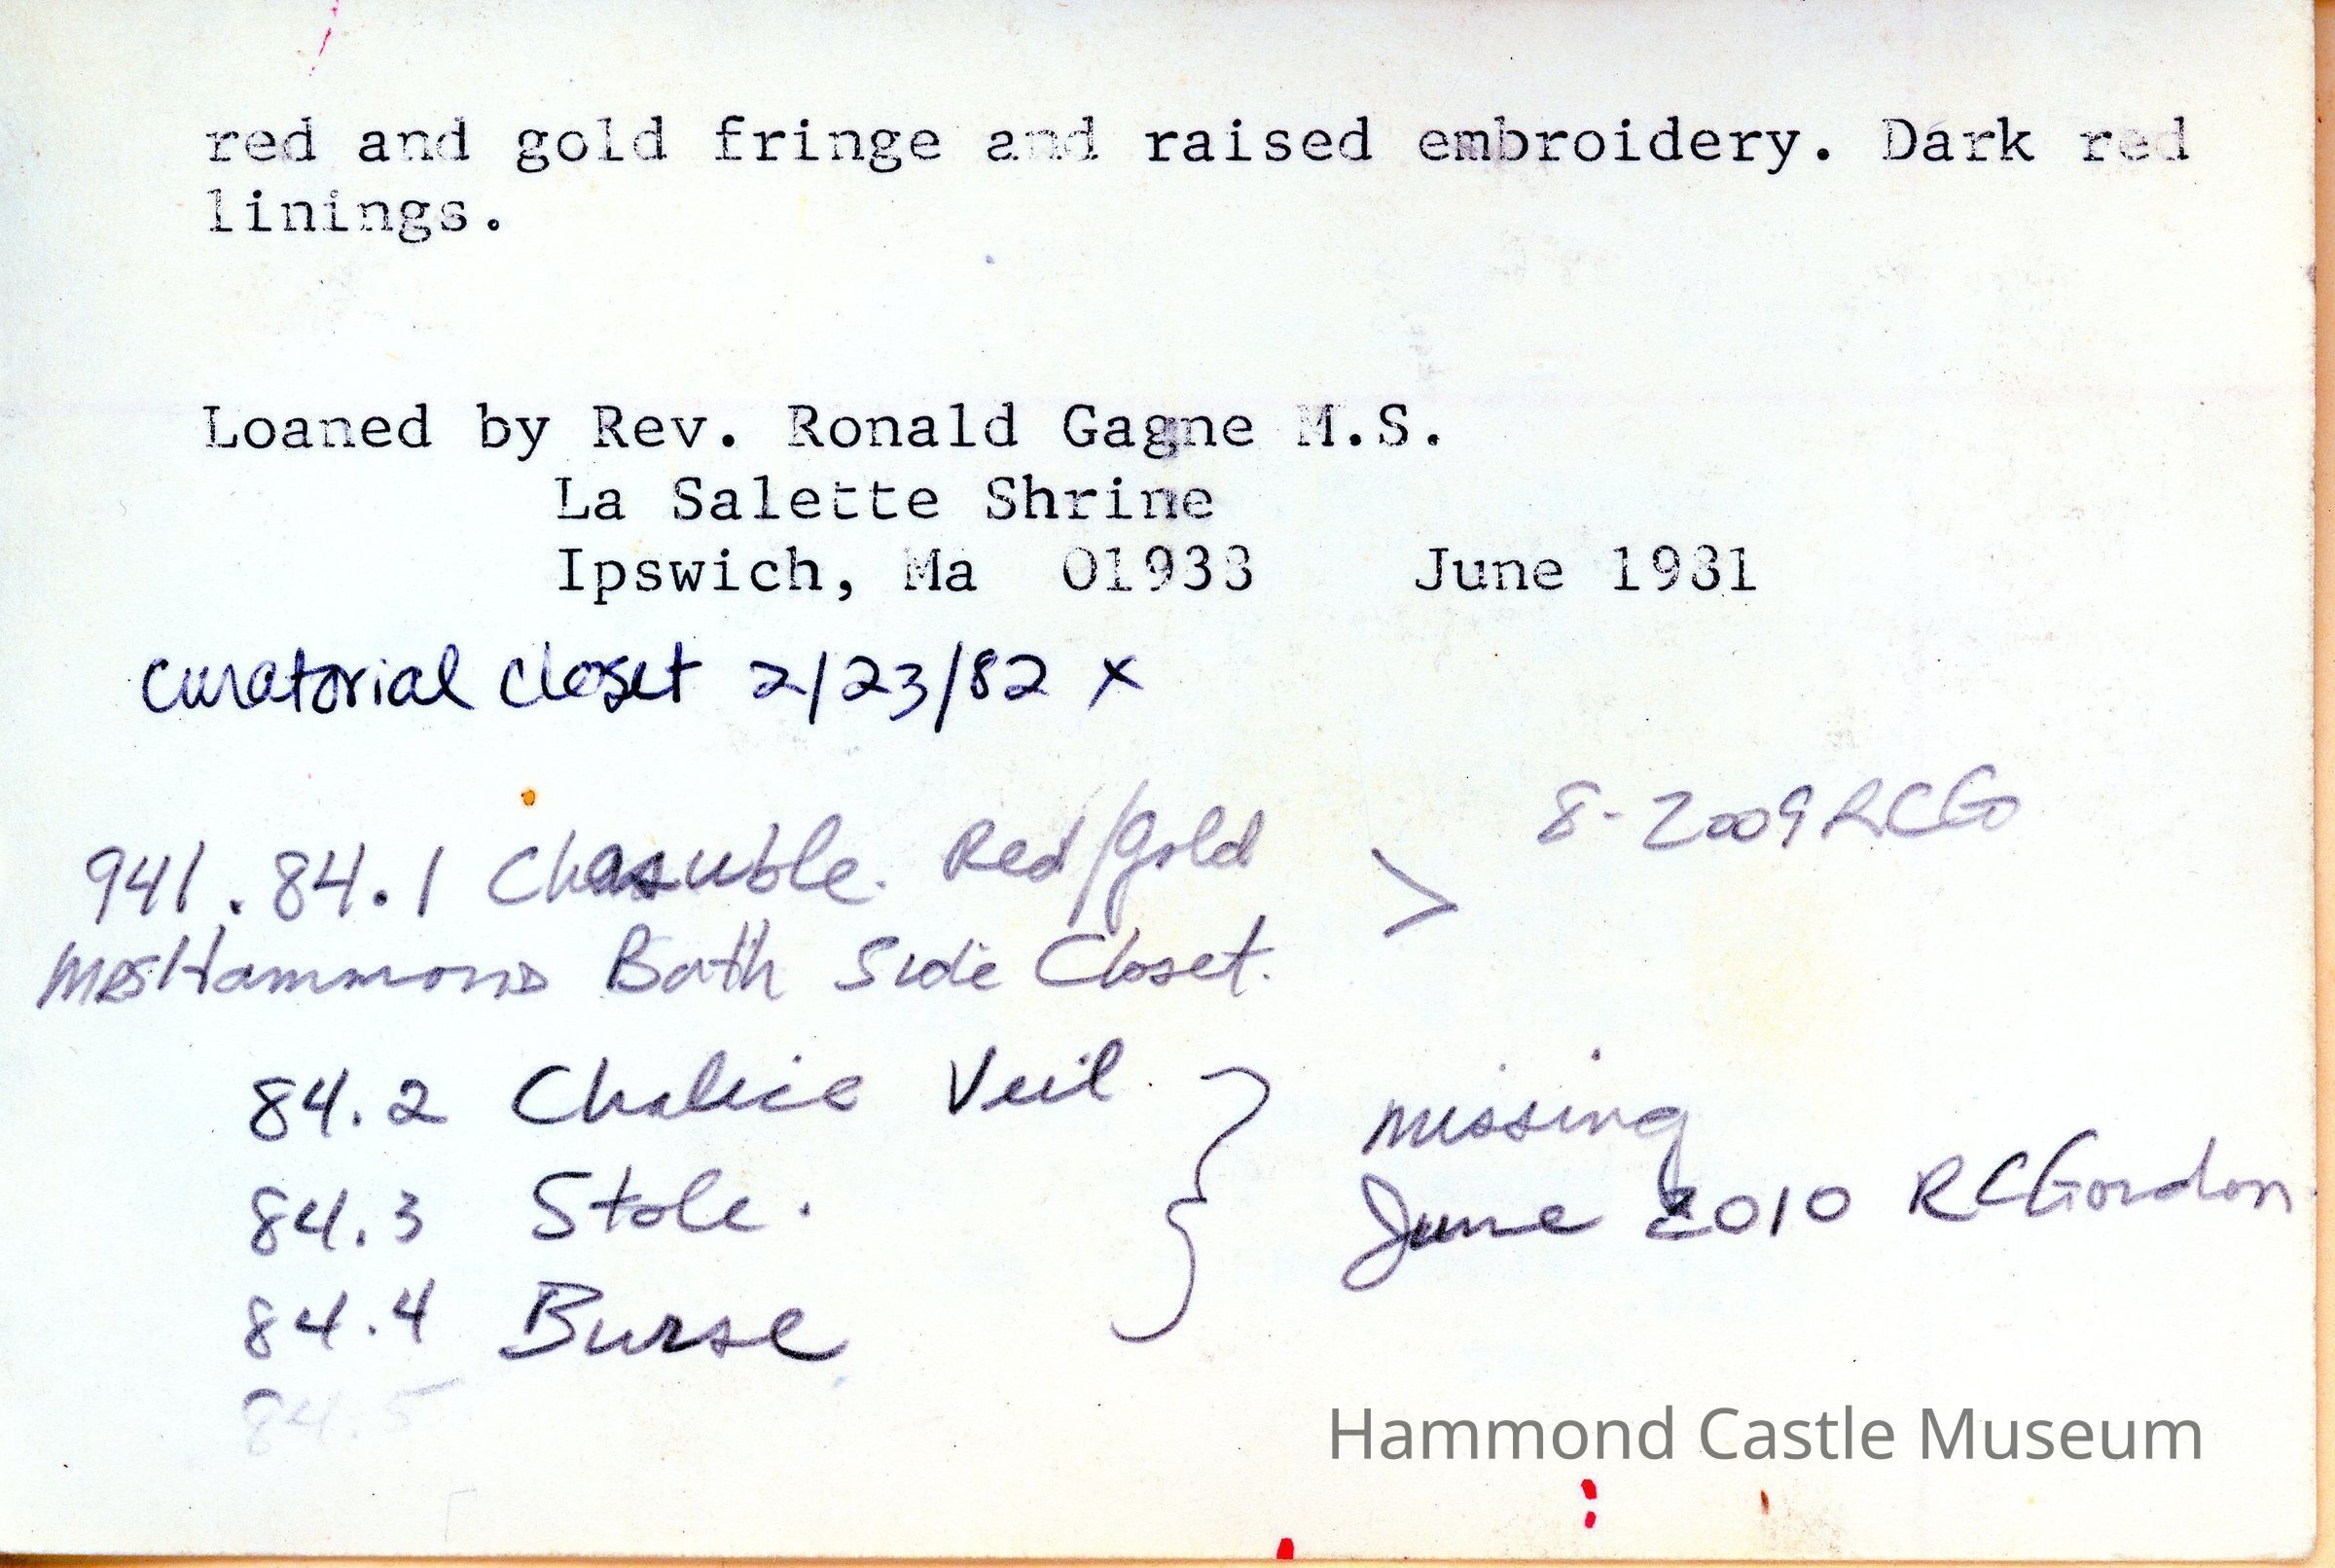 red and gold fringe and raised embroidery. Dark red
linings.
Loaned by Rev. Ronald Gagne M.S.
La Salette Shrine
Ipswich, Ma 01938 June 1981
curatorial closet 2/23/82 x
941.84.1 Chasuble. Red/gold > 8-2009 RCGo
Mrs Hammonds Bath Side Closet.
84.2 Chalice Veil
84.3 Stole.
84.4 Burse
} missing
June 2010 RCGordon
84.5
Hammond Castle Museum